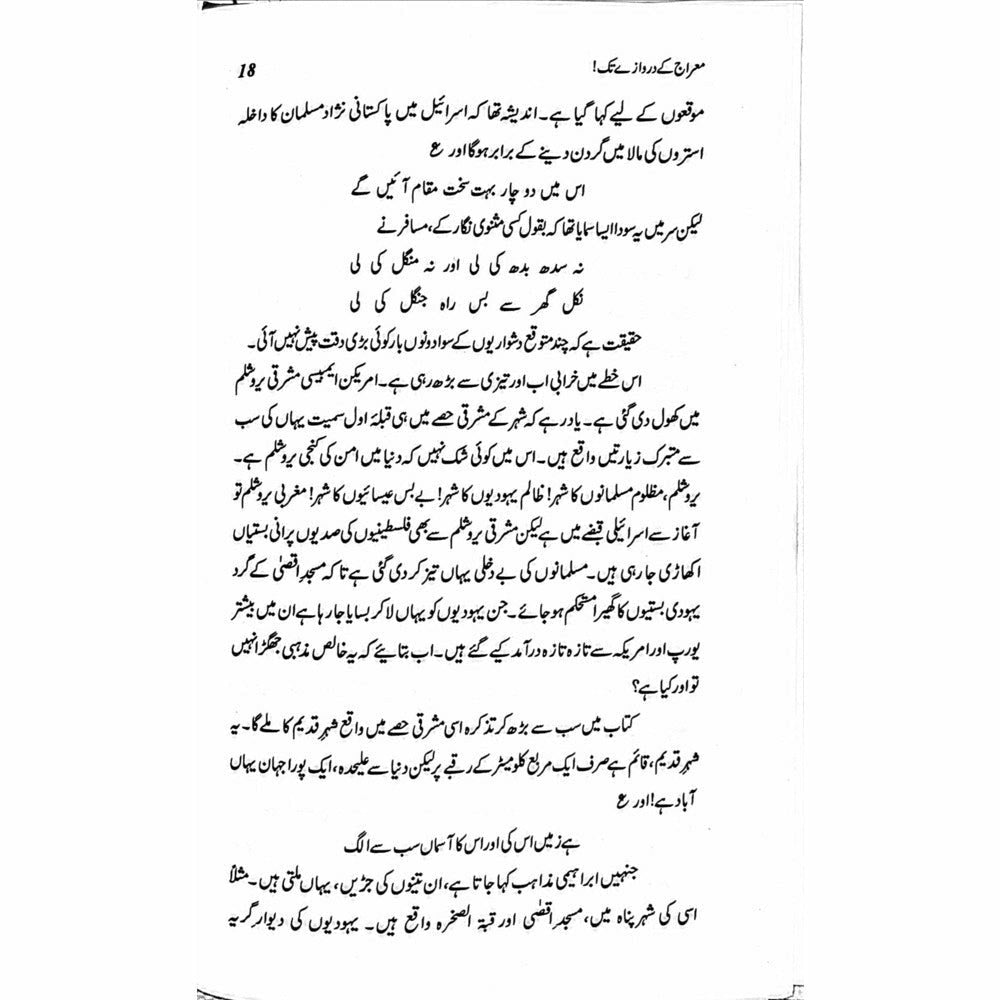 معراج کے دروازے تک!
18
موقعوں کے لیے کہا گیا ہے۔ اندیشہ تھا کہ اسرائیل میں پاکستانی نژاد مسلمان کا داخلہ
استروں کی مالا میں گردن دینے کے برابر ہوگا اور ع
اس میں دو چار بہت سخت مقام آئیں گے
لیکن سر میں یہ سودا ایسا سمایا تھا کہ بقول کسی مثنوی نگار کے، مسافر نے
نہ سدھ بدھ کی لی اور نہ منگل کی لی
نکل گھر سے بس راہ جنگل کی لی
حقیقت ہے کہ چند متوقع دشواریوں کے سوا دونوں بار کوئی بڑی دقت پیش نہیں آئی۔
اس خطے میں خرابی اب اور تیزی سے بڑھ رہی ہے۔ امریکن ایمبیسی مشرقی یروشلم
میں کھول دی گئی ہے۔ یاد رہے کہ شہر کے مشرقی حصے میں ہی قبلۂ اول سمیت یہاں کی سب
سے متبرک زیارتیں واقع ہیں۔ اس میں کوئی شک نہیں کہ دنیا میں امن کی کنجی یروشلم ہے۔
یروشلم، مظلوم مسلمانوں کا شہر! ظالم یہودیوں کا شہر! بے بس عیسائیوں کا شہر! مغربی یروشلم تو
آغاز سے اسرائیلی قبضے میں ہے لیکن مشرقی یروشلم سے بھی فلسطینیوں کی صدیوں پرانی بستیاں
اکھاڑی جا رہی ہیں۔ مسلمانوں کی بے دخلی یہاں تیز کر دی گئی ہے تا کہ مسجدِ اقصیٰ کے گرد
یہودی بستیوں کا گھیرا مستحکم ہو جائے۔ جن یہودیوں کو یہاں لا کر بسایا جا رہا ہے ان میں بیشتر
یورپ اور امریکہ سے تازہ تازہ درآمد کیے گئے ہیں۔ اب بتائیے کہ یہ خالص مذہبی جھگڑا نہیں
تو اور کیا ہے؟
کتاب میں سب سے بڑھ کر تذکرہ اسی مشرقی حصے میں واقع شہرِ قدیم کا ملے گا۔ یہ
شہرِ قدیم، قائم ہے صرف ایک مربع کلومیٹر کے رقبے پر لیکن دنیا سے علیحدہ، ایک پورا جہان یہاں
آباد ہے! اور ع
ہے زمیں اس کی اور اس کا آسماں سب سے الگ
جنہیں ابراہیمی مذاہب کہا جاتا ہے، ان تینوں کی جڑیں، یہاں ملتی ہیں۔ مثلاً
اسی کی شہر پناہ میں، مسجدِ اقصٰی اور قبۃ الصخرہ واقع ہیں۔ یہودیوں کی دیوارِ گریہ